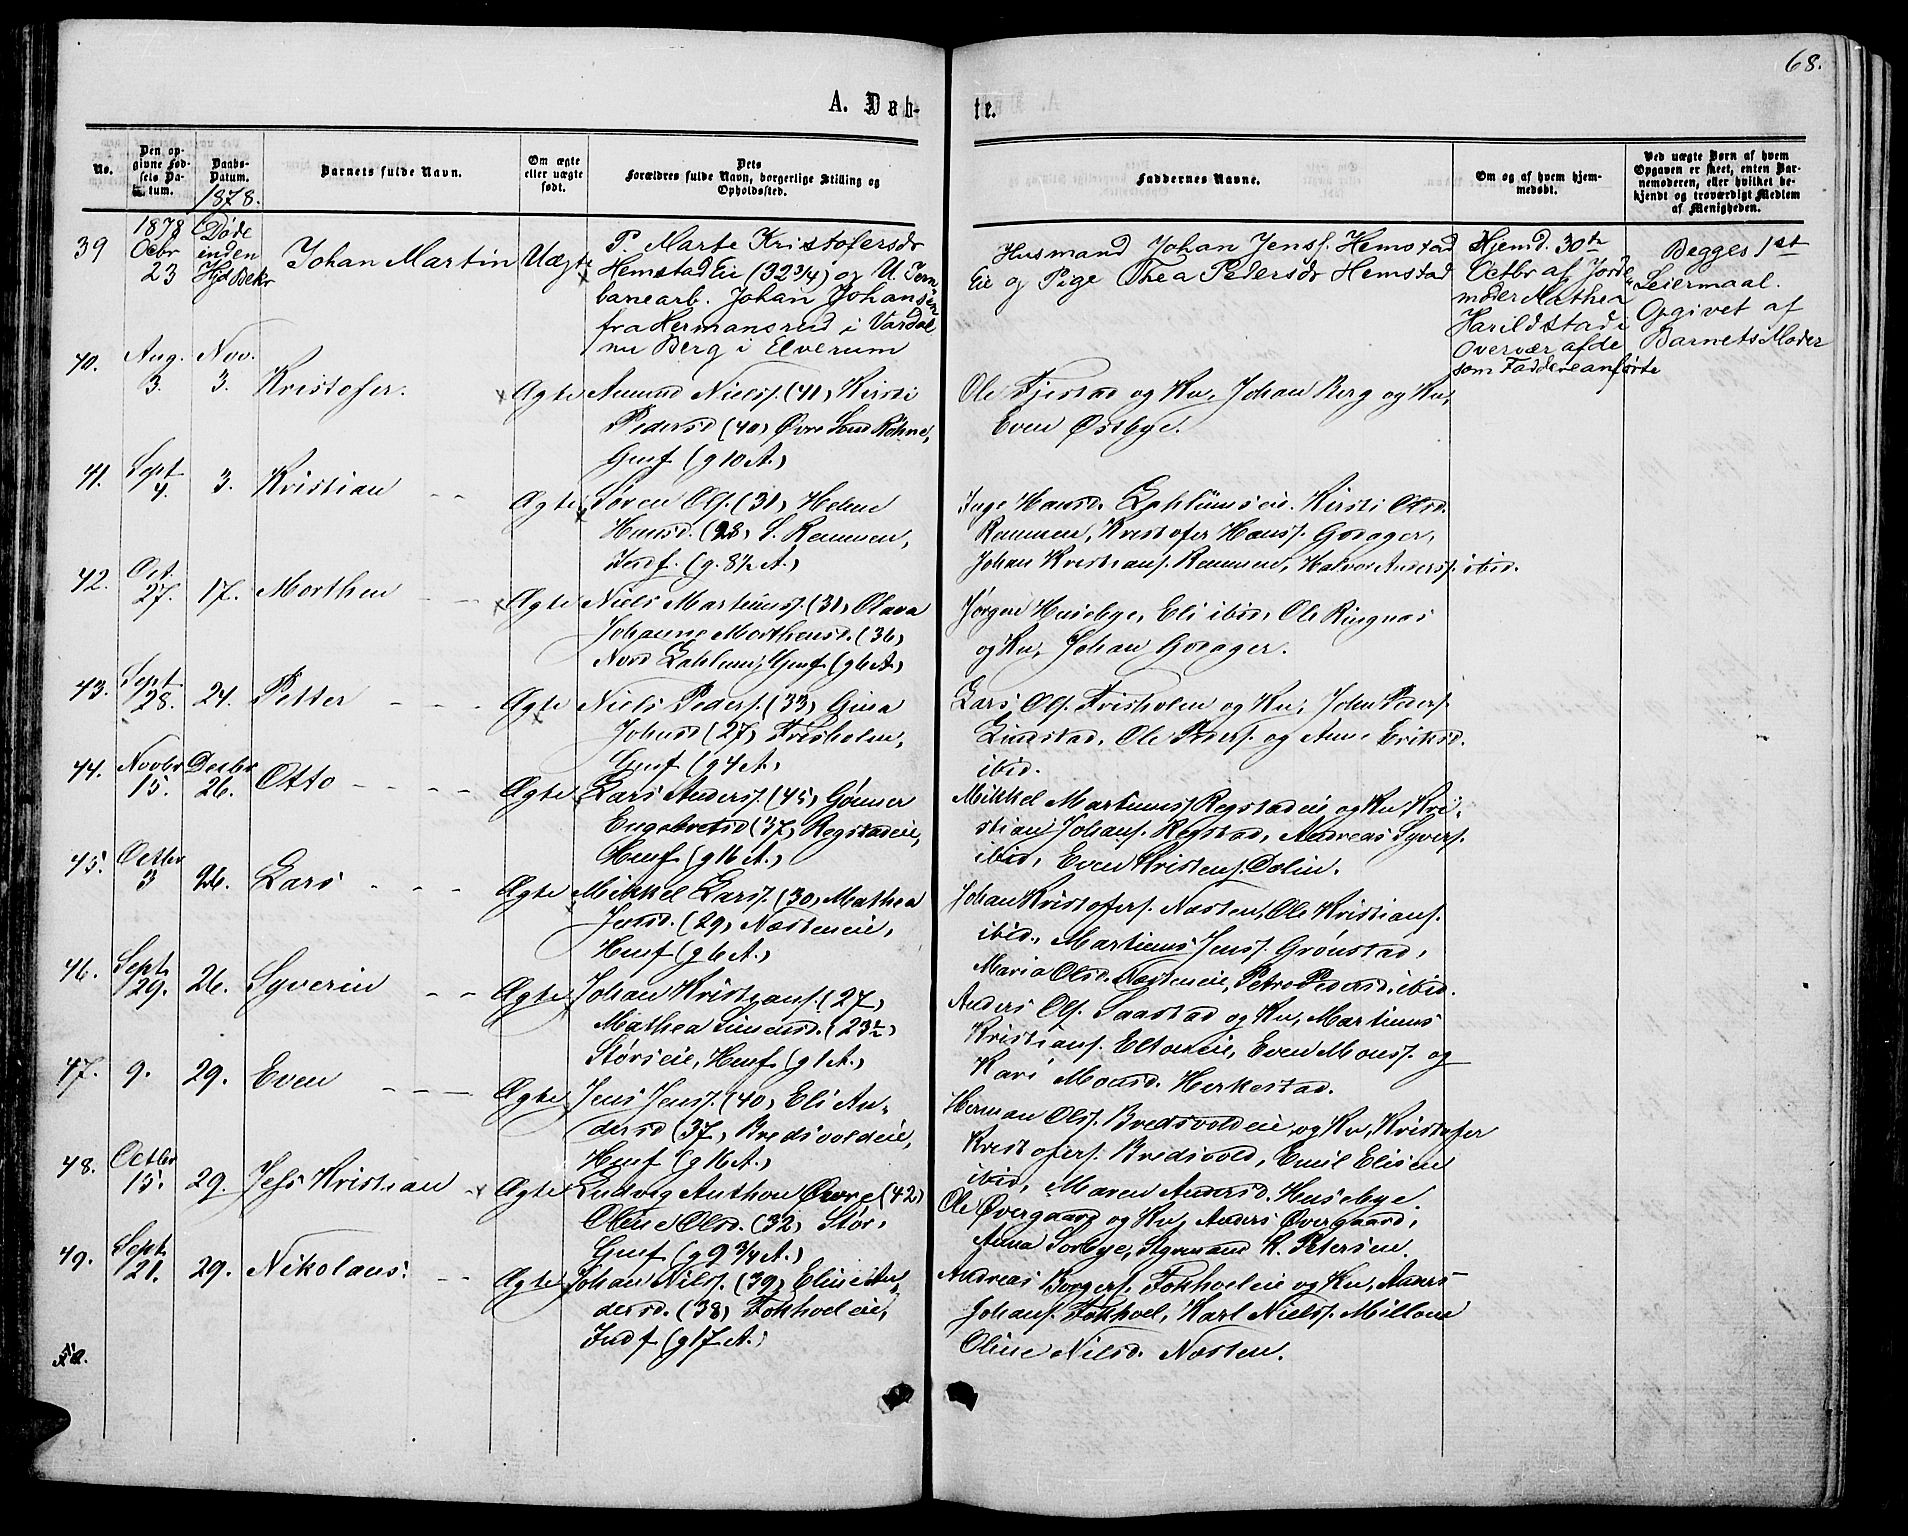 68.
A. Døb-
te.
No.
Den op-
givne Fød-
sels Da-
tum.
Daabs-
Datum.
1878.
Barnets fulde Navn.
Om ægte
eller uægte
født.
Dets
Forældres fulde Navn, borgerlige Stilling og
Opholdssted.
Faddernes Navne.
Om og af hvem hjem-
medøbt.
Ved uægte Børn af hvem
Opgaven er skeet, enten Bar-
nemoderen, eller hvilket be-
kjendt og troværdigt Medlem
af Menigheden.
39
1878
Octbr
23
Døde
inden
Johan Martin
Uægte
P. Marte Kristofersdr
Hemstad Eie (32 3/4) og U. Jern
banearb. Johan Johansen
fra Hermansrud i Vardal
nu Berg i Elverum
Husmand Johan Jenss. Hemstad
Eie og Pige Thea Pedersdr Hemstad
Hjemd. 30te
Octbr af Jorde
moder Mathea
Harildstad i
Overvær af de
som Faddere anførte
Begges 1st
Leiermaal.
Opgivet af
Barnets Moder
40.
Aug.
3.
Nov.
3.
Kristofer.
Ægte
Amund Nielss. (41) Kirsti
Pedersd (40) Øvre Sønd Røhne,
Gmf (g 10 A.)
Ole Fjestad og Ku, Johan Berg og Ku,
Even Østbye.
41.
Sept
4.
3.
Kristian
Ægte
Søren Ols. (31) Helene
Hansd. (28) S. Rammen,
Indf. (g. 8½ A.)
Inge Hansd. Kirsti Olsd.
Rammen, Kristofer Hanss. Godager,
Johan Kristians. Rammen, Halvor Anderss. ibid.
42.
Oct.
27.
17.
Morthen
Ægte
Niels Martinuss. (31) Olava
Johanne Morthensd. (36)
Nord Gmf (g 6 A.)
Jørgen Husebye, Eli ibid, Ole Ringnæs
og Ku, Johan Godager.
43.
Sept
28.
24.
Petter
Ægte
Niels Peders. (33) Gina
Johnsd (27) Frisholm,
Gmf (g 4 A.)
Lars Ols. Frisholm og Ku, John Peders.
Lundstad, Ole Peders. og Anne Eriksd.
ibid.
44.
Novbr
15.
Decbr
26.
Otto
Ægte
Lars Anderss. (45) Gønner
Engebretsd (37) Rogstadeie,
Husf (g 16 A.)
Mikkel Martinuss Rogstadeie og Ku, Kri-
stian Johans. Rogstad, Andreas Syvers.
ibid, Even Kristens. Dolin.
45.
Octbr
3
26.
Lars
Ægte
Mikkel Larss. (30) Mathea
Jensd. (29) Næsteneie,
Husf (g 6 A.)
Johan Kristofers. Næsten, Ole Kristians.
ibid, Martinus Jenss. Grønstad,
Maria Olsd. Næsteneie, Petra Pedersd. ibid.
46.
Sept.
29.
26.
Syverin
Ægte
Johan Kristians. (27)
Mathea Simensd. (23½)
Størseie, Husf (g 1 A.)
Anders Ols. Saastad og Ku, Martinus
Kristians. Eltoneie, Even Monss. og
Kari Monsd. Herkestad.
47.
9.
29.
Even
Ægte
Jens Jenss. (40) Eli An-
dersd (37) Bredsvoldeie,
Husf (g 16 A.)
Herman Olss. Bredsvoldeie og Ku, Kristofer
Kristofers. Bredsvold, Emil Elisen
ibid, Maren Andersd. Husebye.
48.
Octbr
15.
29.
Jess Kristian
Ægte
Ludvig Anthon Qvore (42)
Oline Olsd. (32) Stør,
Gmf (g 9 3/4 A.)
Ole Øvergaard og Ku, Anders Øvergaard,
Anna Sorbye, Styrmand K. Petersen.
49.
Sept.
21.
29.
Nikolaus.
Ægte
Johan Nilss. (39) Eline An-
dersd. (38) Fokholeie,
Indf (g 17 A.)
Andreas Borgers. Fokholeie og Ku, Anders
Johans. Fokhol, Karl Nielss. Millom
Oline Nilsd. Næsten.
50.